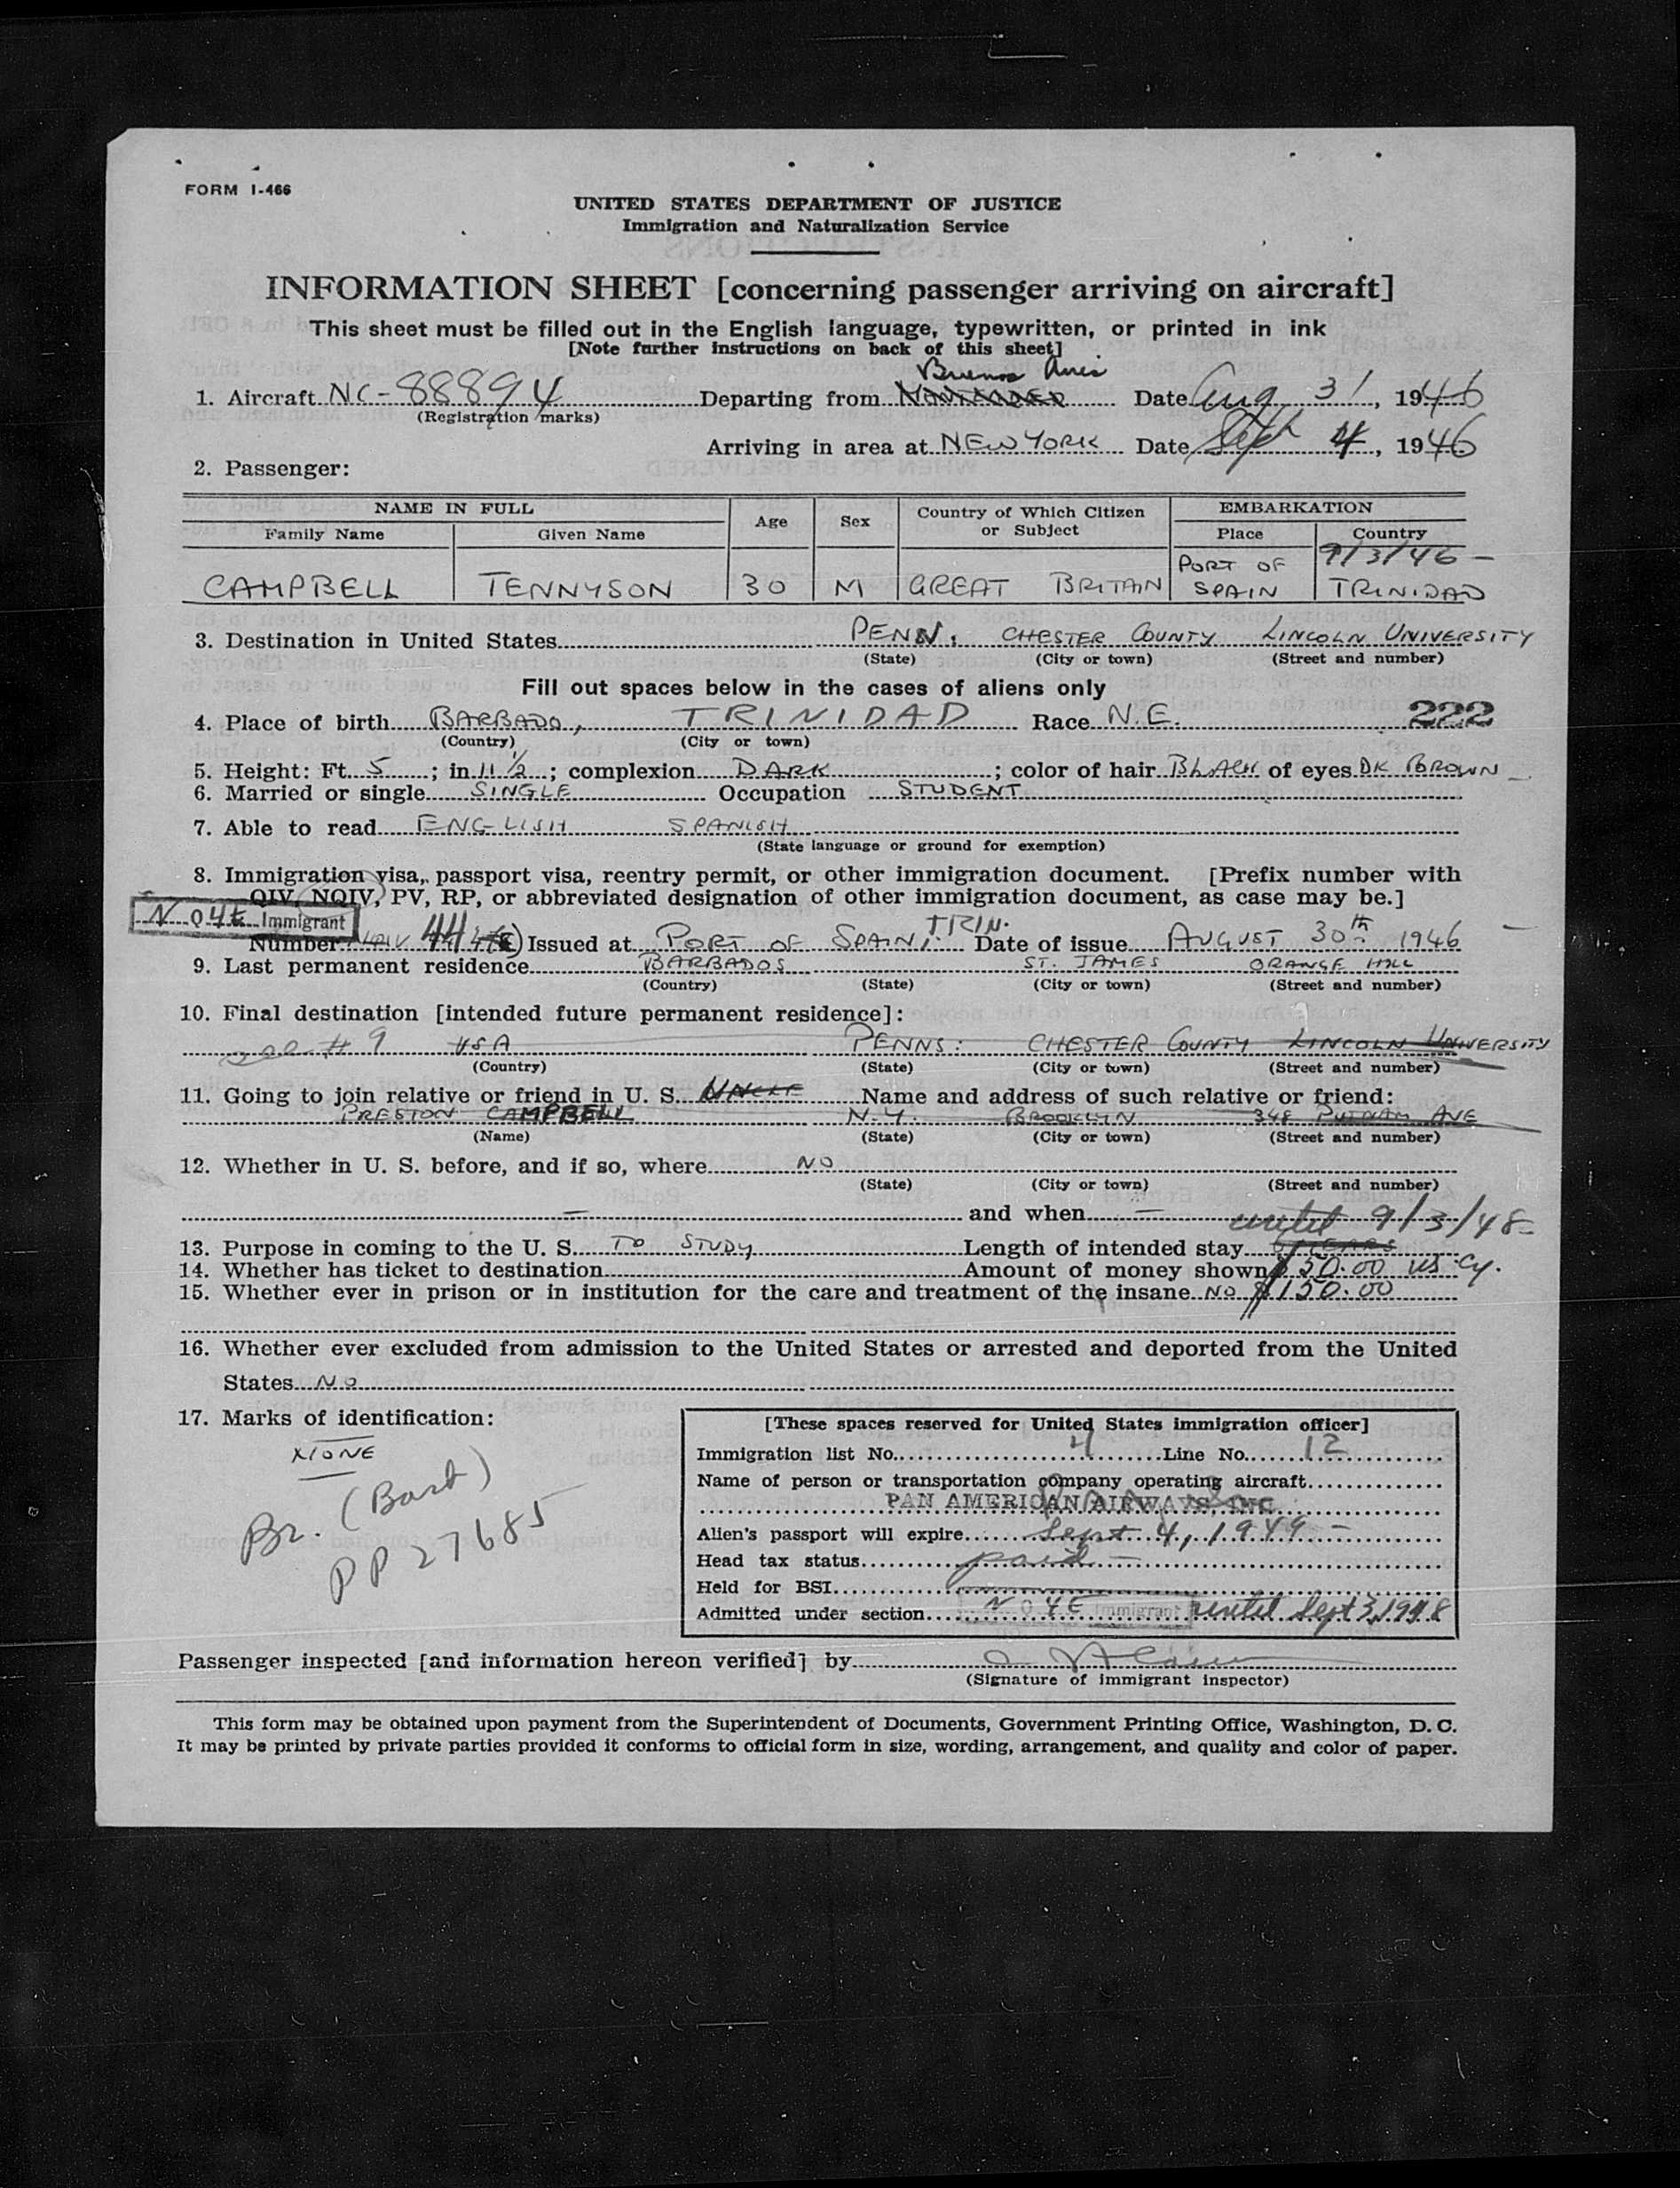 FORM I-466
UNITED STATES DEPARTMENT OF JUSTICE
Immigration and Naturalization Service
INFORMATION SHEET [concerning passenger arriving on aircraft]
This sheet must be filled out in the English language, typewritten, or printed in ink
[Note further instructions on back of this sheet]
Buenos Aires
1. Aircraft NC-88894 Departing from Date Aug 31, 1946
(Registration marks)
Arriving in area at NEW YORK Date Sept 4, 1946
2. Passenger:
NAME IN FULL Age Sex Country of Which Citizen or Subject EMBARKATION
Family Name Given Name Place Country
9/3/46 -
CAMPBELL TENNYSON 30 M GREAT BRITAIN PORT OF SPAIN TRINIDAD
3. Destination in United States PENN. CHESTER COUNTY LINCOLN UNIVERSITY
(State) (City or town) (Street and number)
Fill out spaces below in the cases of aliens only
4. Place of birth BARBADO, TRINIDAD Race N.E. 222
(Country) (City or town)
5. Height: Ft. 5; in 11 1/2; complexion DARK; color of hair BLACK of eyes DK BROWN
6. Married or single SINGLE Occupation STUDENT
7. Able to read ENGLISH SPANISH
(State language or ground for exemption)
8. Immigration visa, passport visa, reentry permit, or other immigration document. [Prefix number with
QIV, NQIV, PV, RP, or abbreviated designation of other immigration document, as case may be.]
N 04E Immigrant
Number 44 Issued at PORT OF SPAIN, TRIN. Date of issue AUGUST 30th 1946
9. Last permanent residence BARBADOS ST. JAMES ORANGE HILL
(Country) (State) (City or town) (Street and number)
10. Final destination [intended future permanent residence]:
see # 9 USA PENNS: CHESTER COUNTY LINCOLN UNIVERSITY
(Country) (State) (City or town) (Street and number)
11. Going to join relative or friend in U. S. UNCLE Name and address of such relative or friend:
PRESTON CAMPBELL N.Y. BROOKLYN 348 PUTNAM AVE
(Name) (State) (City or town) (Street and number)
12. Whether in U. S. before, and if so, where NO
(State) (City or town) (Street and number)
— and when — until 9/3/48
13. Purpose in coming to the U. S. TO STUDY Length of intended stay YEARS
14. Whether has ticket to destination Amount of money shown $50.00 US Cy.
15. Whether ever in prison or in institution for the care and treatment of the insane NO $150.00
16. Whether ever excluded from admission to the United States or arrested and deported from the United
States NO
17. Marks of identification:
NONE
Br. (Barb)
PP 27685
[These spaces reserved for United States immigration officer]
Immigration list No. 4 Line No. 12
Name of person or transportation company operating aircraft
PAN AMERICAN AIRWAYS, INC.
Alien's passport will expire Sept 4, 1949 -
Head tax status paid -
Held for BSI
Admitted under section N 04E Immigrant until Sept 3, 1948
Passenger inspected [and information hereon verified] by
(Signature of immigrant inspector)
This form may be obtained upon payment from the Superintendent of Documents, Government Printing Office, Washington, D. C.
It may be printed by private parties provided it conforms to official form in size, wording, arrangement, and quality and color of paper.